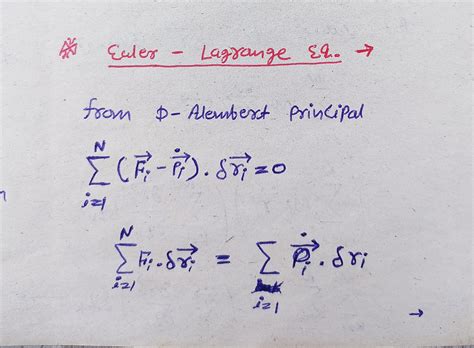 Euler - Lagrange Eq. →
from D-Alembert Principal
N
∑ (F⃗ᵢ - ṗ⃗ᵢ) . δr⃗ᵢ = 0
i=1
N
∑ Fᵢ . δr⃗ᵢ = ∑ ṗ⃗ᵢ . δrᵢ
i=1 i=1
→